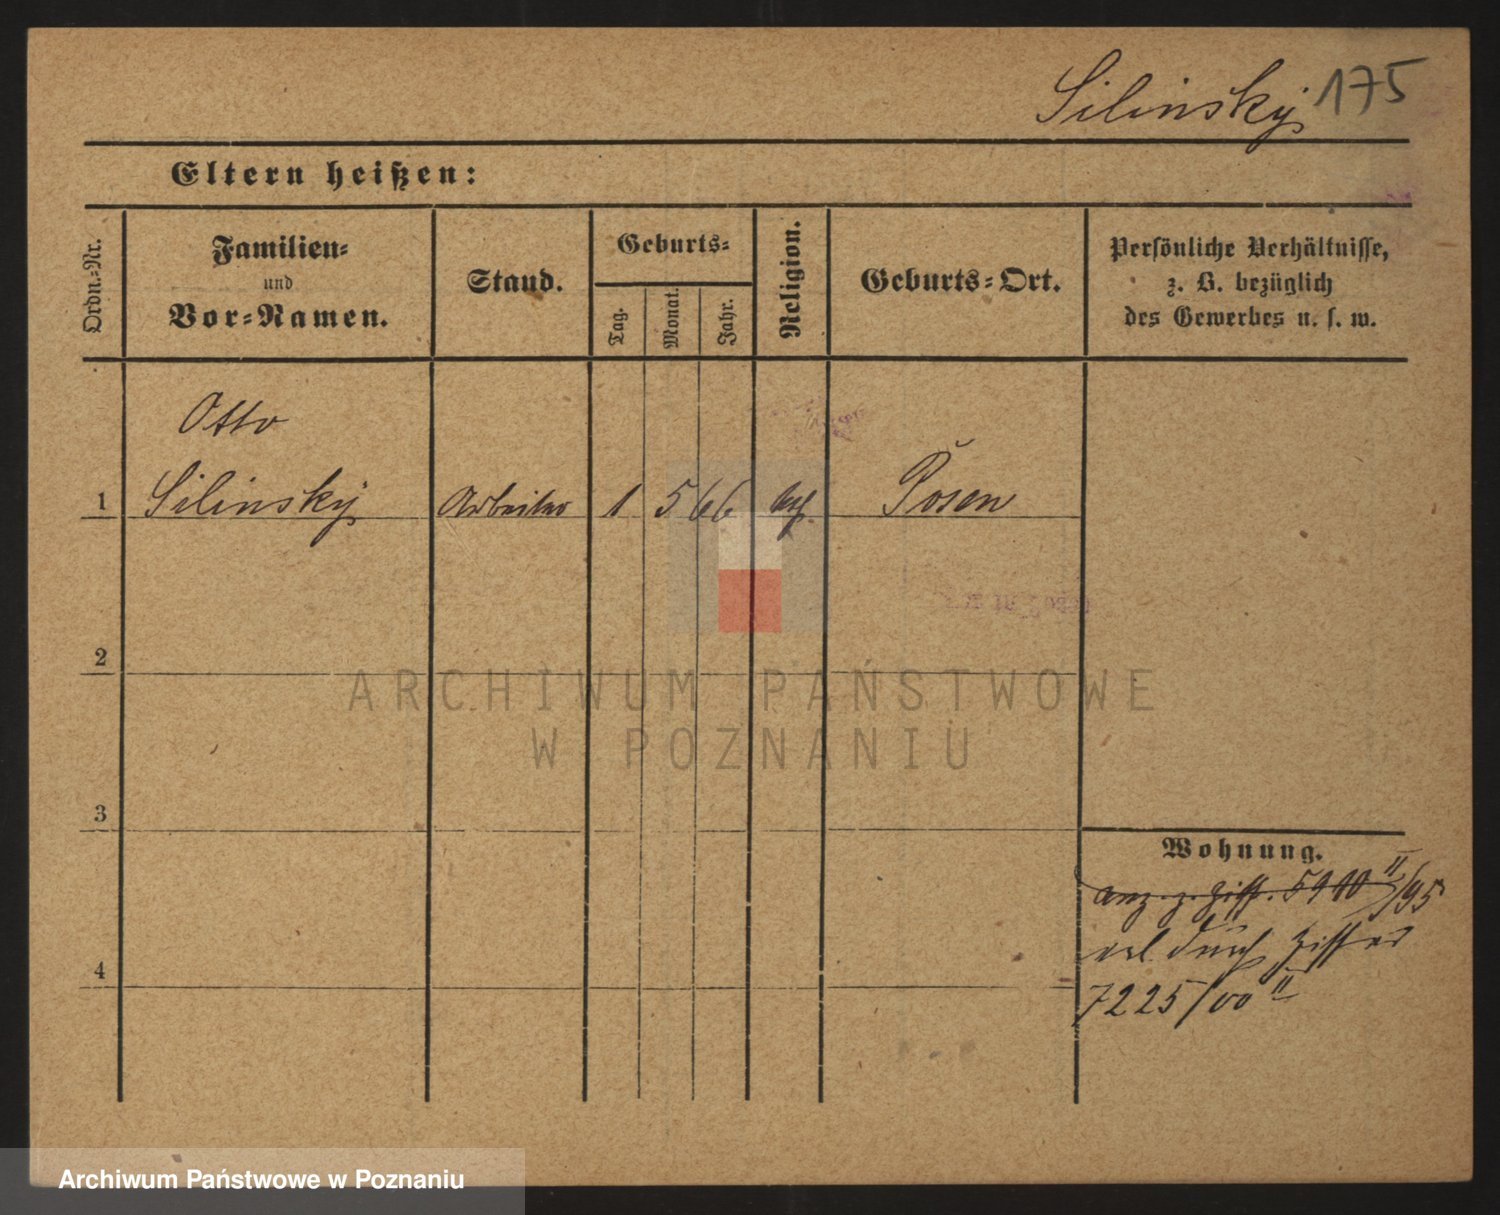 Silinsky 175
Eltern heißen:
Ordn.-Nr.
Familien-
und
Vor-Namen.
Stand.
Geburts-
Tag.
Monat.
Jahr.
Religion.
Geburts-Ort.
Persönliche Verhältnisse,
z. B. bezüglich
des Gewerbes u. s. w.
Otto
1 Silinsky Arbeiter 1 5 66 Posen
2
ARCHIWUM PAŃSTWOWE
W POZNANIU
3
Wohnung.
anz. z. Ziff. 5900 II/95
durch Ziffer
4
7225/00 II
Archiwum Państwowe w Poznaniu